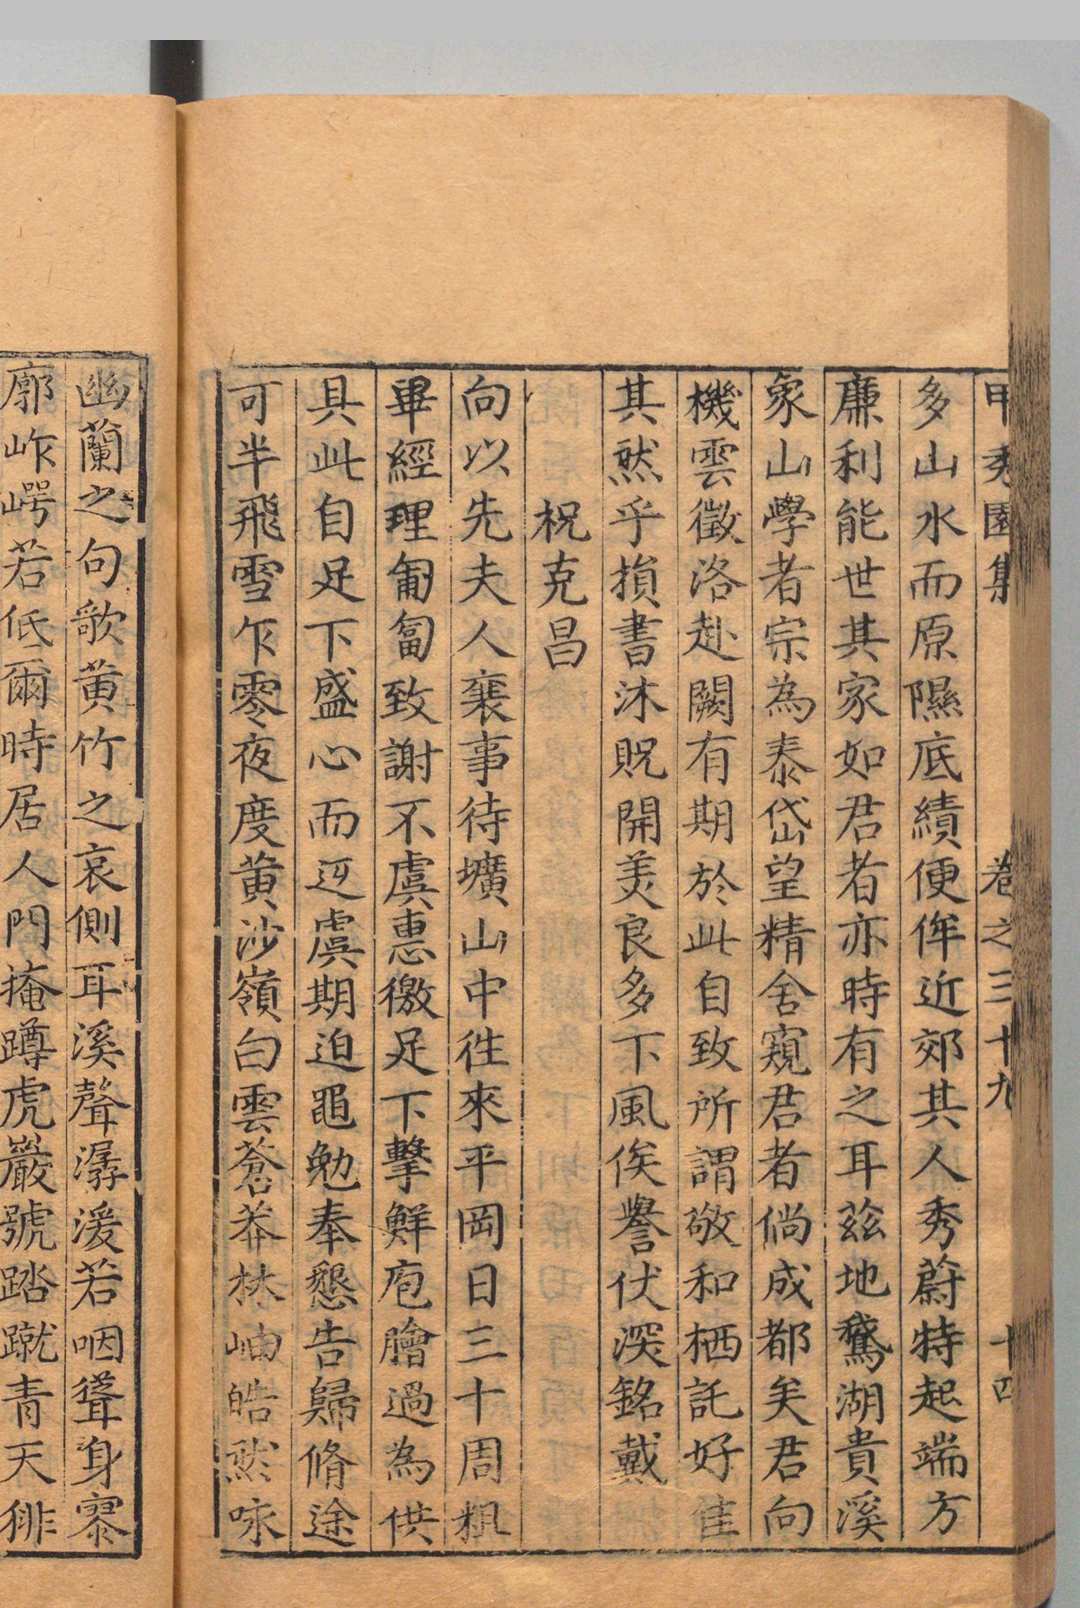 甲秀園集 卷之三十九 十四
多山水而原隰底績便侔近郊其人秀蔚特起端方
廉利能世其家如君者亦時有之耳茲地鵞湖貴溪
象山學者宗為泰岱望精舍窺君者倘成都矣君向
機雲徵洛赴闕有期於此自致所謂敬和栖託好佳
其然乎損書沐貺開美良多下風俟譽伏深銘戴
祝克昌
向以先夫人襄事待壙山中徃來平岡日三十周粗
畢經理匍匐致謝不虞惠徼足下擊鮮庖膾過為供
具此自足下盛心而迓虞期迫黽勉奉懇告歸脩途
可半飛雪乍零夜度黃沙嶺白雲蒼莽林岫皓然咏
幽蘭之句歌黃竹之哀側耳溪聲潺湲若咽聳身寥
廓岞崿若低爾時居人門掩蹲虎巖號踏蹴青天徘